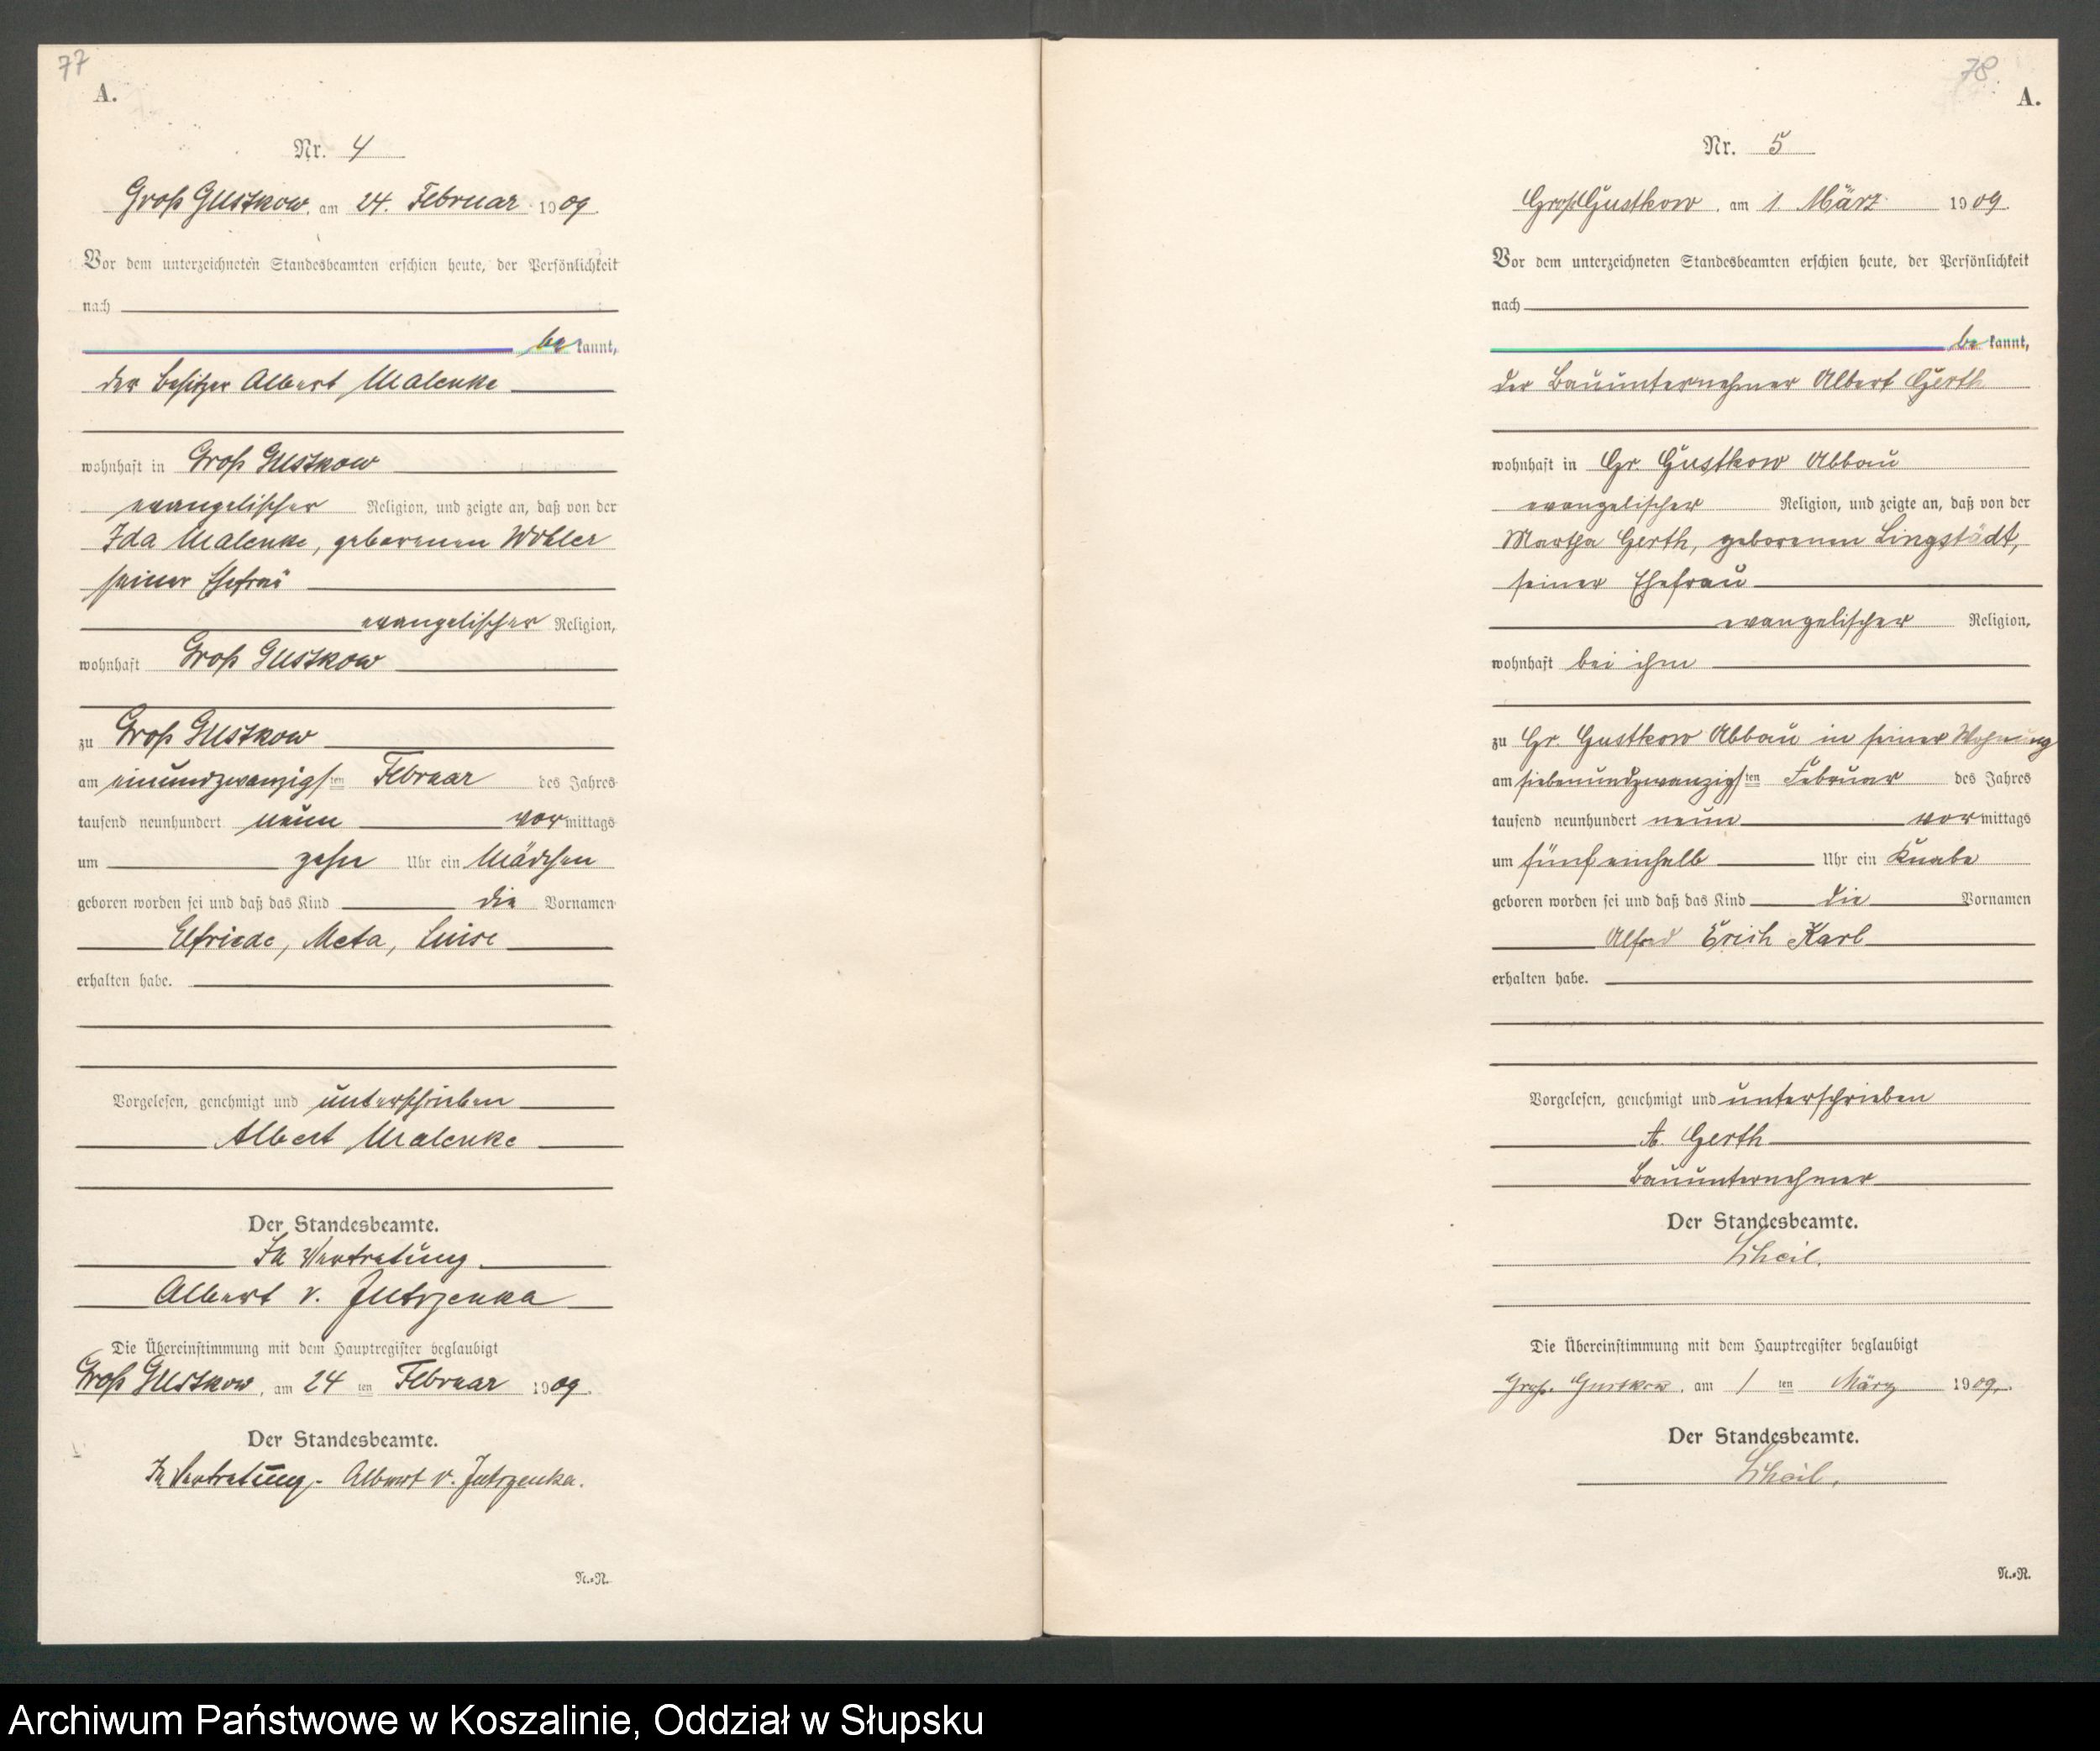 77
A.
Nr. 4
Groß Gustkow, am 24. Februar 1909.
Vor dem unterzeichneten Standesbeamten erschien heute, der Persönlichkeit
nach
bekannt,
der Besitzer Albert Malenke
wohnhaft in Groß Gustkow
evangelischer Religion, und zeigte an, daß von der
Ida Malenke, geborenen Wobler
seiner Ehefrau
evangelischer Religion,
wohnhaft Groß Gustkow
zu Groß Gustkow
am einundzwanzigsten Februar des Jahres
tausend neunhundert neun vormittags
um zehn Uhr ein Mädchen
geboren worden sei und daß das Kind die Vornamen
Elfriede, Meta, Luise
erhalten habe.
Vorgelesen, genehmigt und unterschrieben
Albert Malenke
Der Standesbeamte.
In Vertretung
Albert v. Jutrzenka
Die Übereinstimmung mit dem Hauptregister beglaubigt
Groß Gustkow, am 24 ten Februar 1909.
Der Standesbeamte.
In Vertretung. Albert v. Jutrzenka.
N.=R.
78
A.
Nr. 5
Groß Gustkow, am 1. März 1909.
Vor dem unterzeichneten Standesbeamten erschien heute, der Persönlichkeit
nach
bekannt,
der Bauunternehmer Albert Gerth
wohnhaft in Gr. Gustkow Abbau
evangelischer Religion, und zeigte an, daß von der
Martha Gerth, geborenen Lingstädt,
seiner Ehefrau
evangelischer Religion,
wohnhaft bei ihm
zu Gr. Gustkow Abbau in seiner Wohnung
am siebenundzwanzigsten Februar des Jahres
tausend neunhundert neun vormittags
um fünf einhalb Uhr ein Knabe
geboren worden sei und daß das Kind die Vornamen
Alfred Erich Karl
erhalten habe.
Vorgelesen, genehmigt und unterschrieben
A. Gerth
Bauunternehmer
Der Standesbeamte.
Die Übereinstimmung mit dem Hauptregister beglaubigt
Groß. Gustkow, am 1 ten März 1909.
Der Standesbeamte.
N.=R.
Archiwum Państwowe w Koszalinie, Oddział w Słupsku